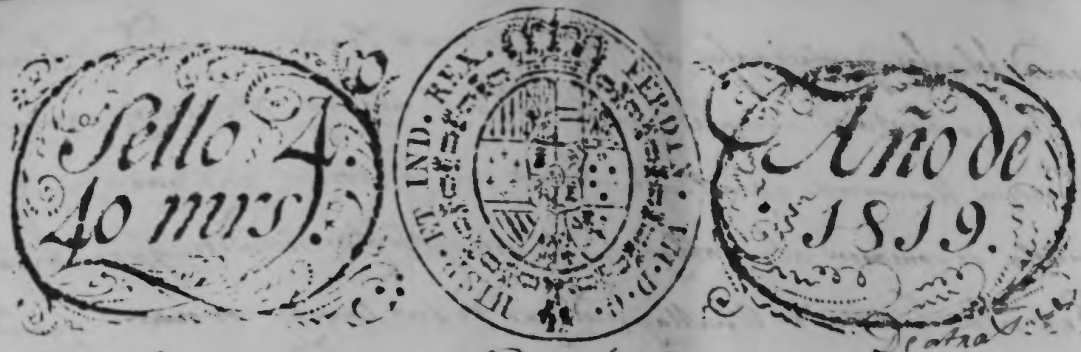 Sello 4.º
40 mrs.
FERDIN. VII. D. G. HISP. ET IND. REX.
Año de
1819.